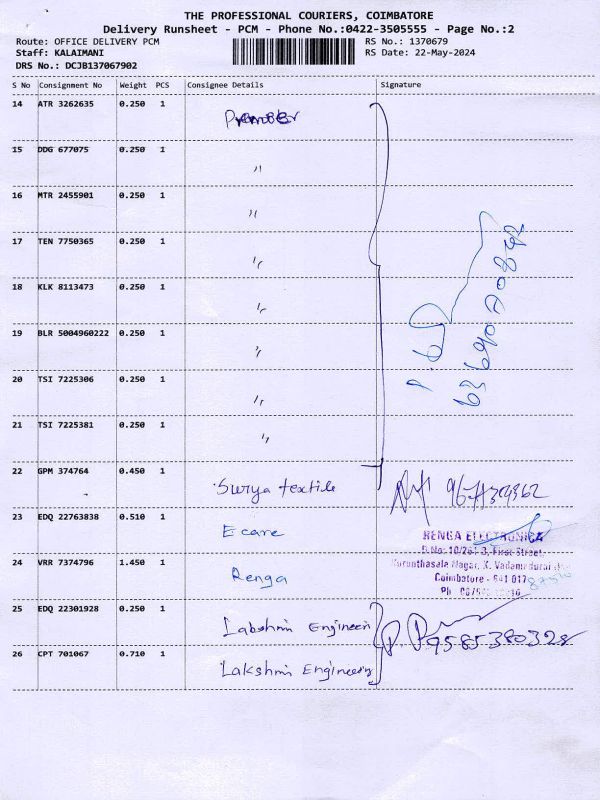 THE PROFESSIONAL COURIERS, COIMBATORE
Delivery Runsheet - PCM - Phone No.:0422-3505555 - Page No.:2
Route: OFFICE DELIVERY PCM RS No.: 1370679
Staff: KALAIMANI RS Date: 22-May-2024
DRS No.: DCJB137067902
S No Consignment No Weight PCS Consignee Details Signature
14 ATR 3262635 0.250 1
15 DDG 677075 0.250 1 "
16 MTR 2455901 0.250 1 "
17 TEN 7750365 0.250 1 "
18 KLK 8113473 0.250 1 "
19 BLR 5004960222 0.250 1 "
20 TSI 7225306 0.250 1 "
21 TSI 7225381 0.250 1 "
22 GPM 374764 0.450 1 Surya textile
23 EDQ 22763838 0.510 1 Ecare
RENGA ELECTRONICA
24 VRR 7374796 1.450 1 Renga
First Street
Nagar, K. Vadamadurai
Coimbatore - 641 017
Ph
25 EDQ 22301928 0.250 1 Labshmi Engineerin
9585380328
26 CPT 701067 0.710 1 Lakshmi Engineering